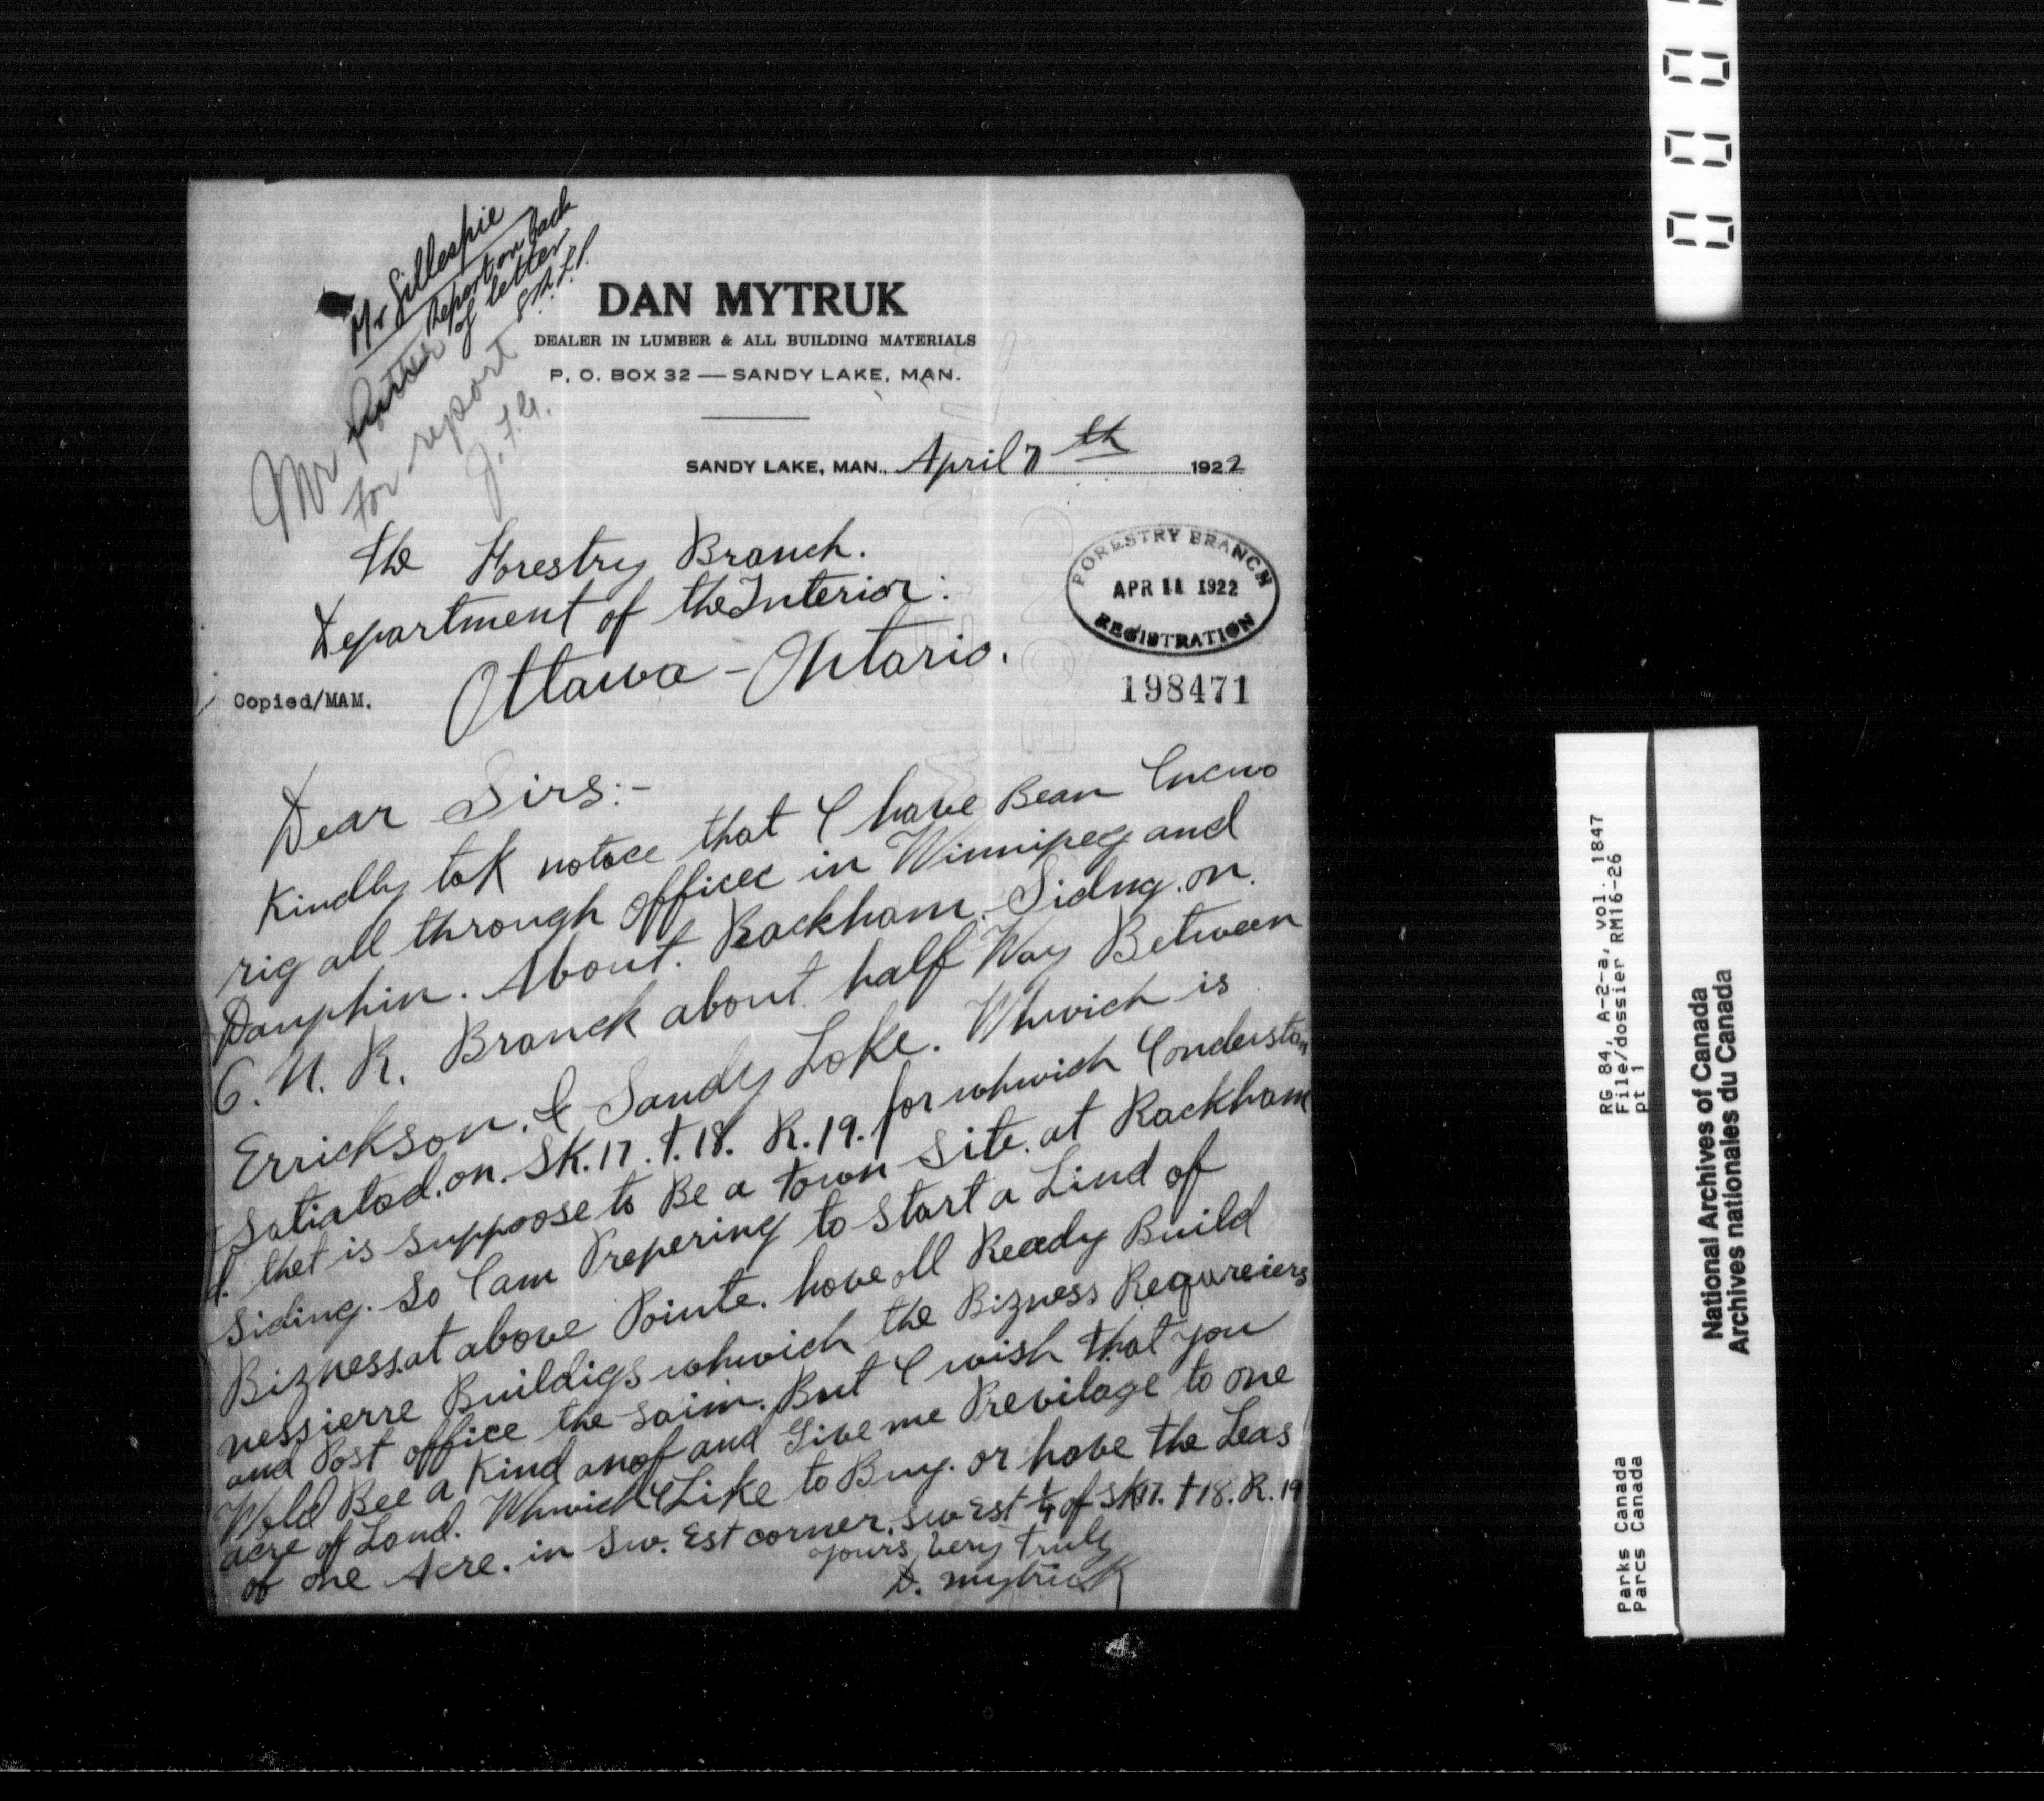 Mr Gillespie
Report on back
of letter
Mr
for report
J.F.G.
DAN MYTRUK
DEALER IN LUMBER & ALL BUILDING MATERIALS
P. O. BOX 32 — SANDY LAKE, MAN.
SANDY LAKE, MAN., April 7th 1922
The Forestry Branch.
Department of the Interior:
Ottawa - Ontario.
FORESTRY BRANCH
APR 11 1922
REGISTRATION
198471
Copied/MAM.
Dear Sirs:-
Kindly tak notace that I have Bean Encwo
rig all through officec in Winnipeg and
Dauphin. About. Rackham. Sidng. on.
C. N. R. Branck about half Way Between
Errickson. & Sandy Lake. Whwich is
Satiatad. on. SK. 17. t. 18. R. 19. for whwich I onderstan
d. thet is suppoose to Be a town site. at Rackham
Siding. So I am Prepering to start a Lind of
Bizness. at above Pointe. have all Ready Build
nessierre Buildigs whwich the Bizness Requreiers
and Post office the saim. But I wish that you
Wold Bee a Kind anof and Give me Previlage to one
acre of Land. Whwich I Like to Buy. or have the Leas
of one Acre. in Sw. Est corner. sw Est ¼ of SK17. t18. R. 19
yours very truly
D. Mytruk
RG 84, A-2-a, vol. 1847
File/dossier RM16-26
pt 1
Parks Canada
Parcs Canada
National Archives of Canada
Archives nationales du Canada